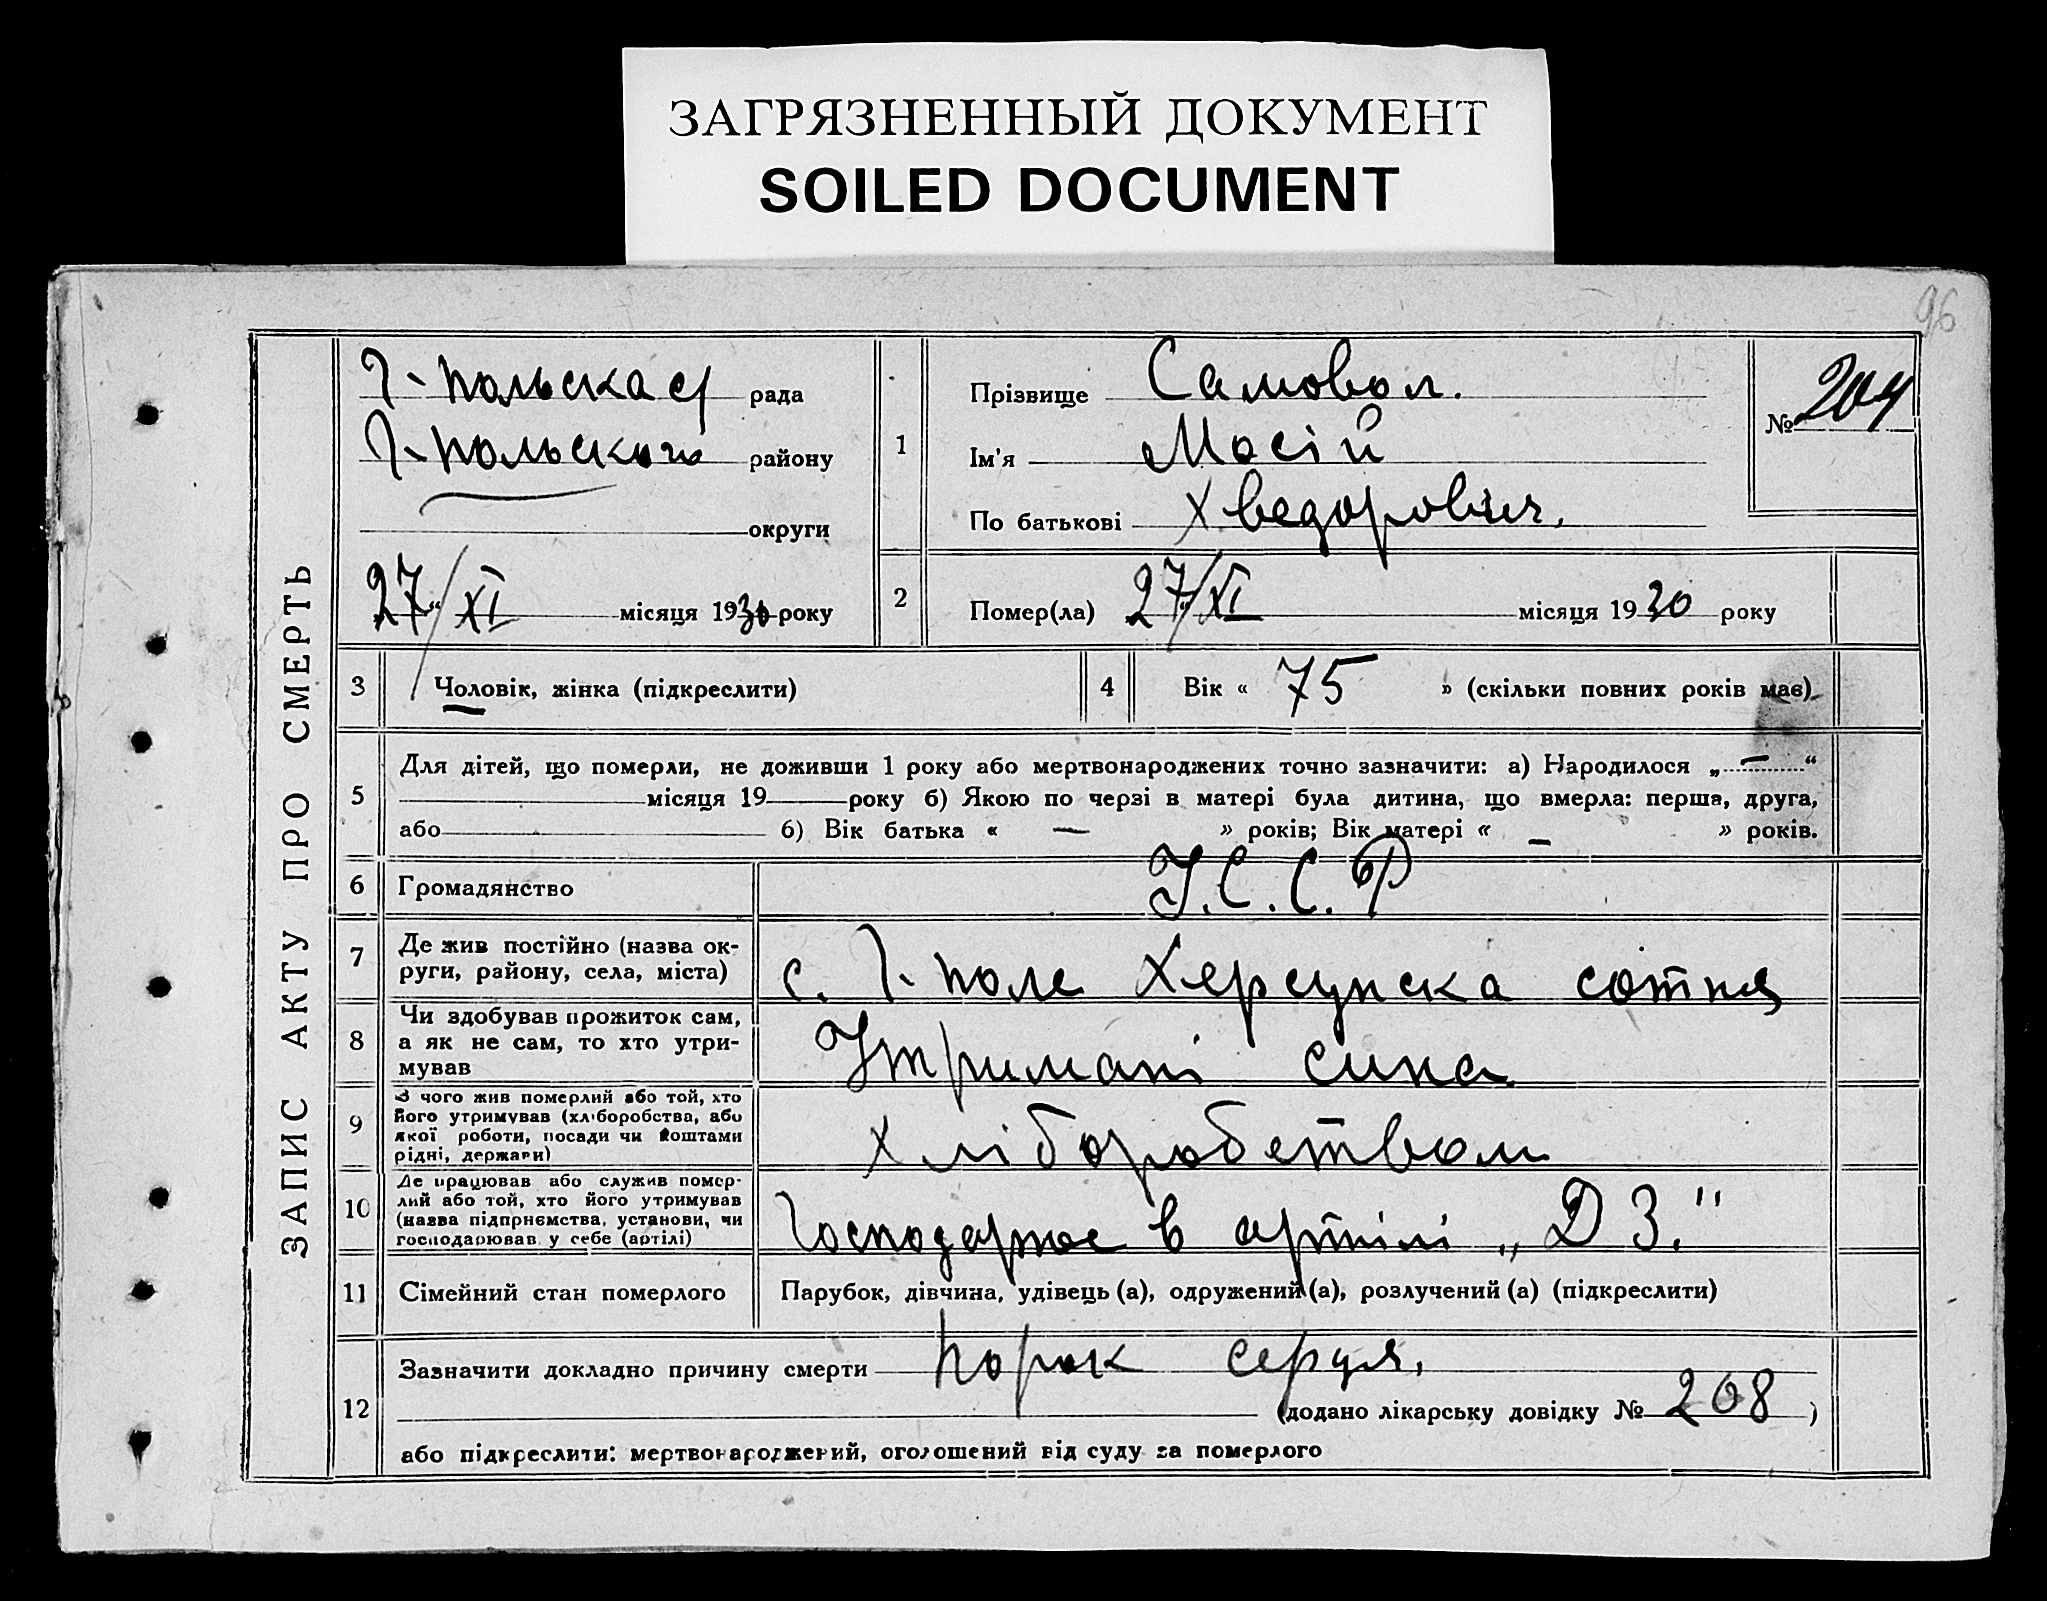 ЗАГРЯЗНЕННЫЙ ДОКУМЕНТ
SOILED DOCUMENT
96
ЗАПИС АКТУ ПРО СМЕРТЬ
Г-польска с/ рада
Г-польского району
округи
27/XI місяця 1930 року
1
Прізвище Самовол.
Ім'я Мосій
По батькові Хведорович.
№ 204
2 Помер(ла) 27/XI місяця 1930 року
3 Чоловік, жінка (підкреслити)
4 Вік « 75 » (скільки повних років має)
5 Для дітей, що померли, не доживши 1 року або мертвонароджених точно зазначити: а) Народилося „ — “
місяця 19 року б) Якою по черзі в матері була дитина, що вмерла: перша, друга,
або б) Вік батька « — » років; Вік матері « — » років.
6 Громадянство У.С.С.Р
7 Де жив постійно (назва ок-
руги, району, села, міста) с. Г-поле Херсунска сотня
8 Чи здобував прожиток сам,
а як не сам, то хто утри-
мував Утримані сина
9 З чого жив померлий або той, хто
його утримував (хліборобства, або
якої роботи, посади чи коштами
рідні, держави) хліборобством
10 Де працював або служив помер-
лий або той, хто його утримував
(назва підприємства, установи, чи
господарював у себе (артілі) Господарює в артілі „ДЗ."
11 Сімейний стан померлого Парубок, дівчина, удівець (а), одружений (а), розлучений (а) (підкреслити)
12 Зазначити докладно причину смерти порок серця.
(додано лікарську довідку № 208 )
або підкреслити: мертвонароджений, оголошений від суду за померлого